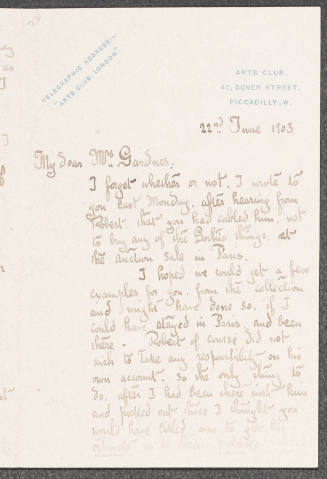 TELEGRAPHIC ADDRESS:—
"ARTS CLUB, LONDON"
ARTS CLUB,
40, DOVER STREET,
PICCADILLY. W.
22nd June 1903
My dear Mrs Gardner,
I forget whether or not, I wrote to
you last Monday, after hearing from
Robert that you had cabled him, not
to buy any of the things at
the auction sale in Paris.
I hoped we could get a few
examples for you, from the collection
and might have done so, if I
could have stayed in Paris and been
there — Robert of course did not
wish to take any responsibility on his
own account. So the only thing to
do, after I had been there with him
and picked out those I thought you
would have liked was to get